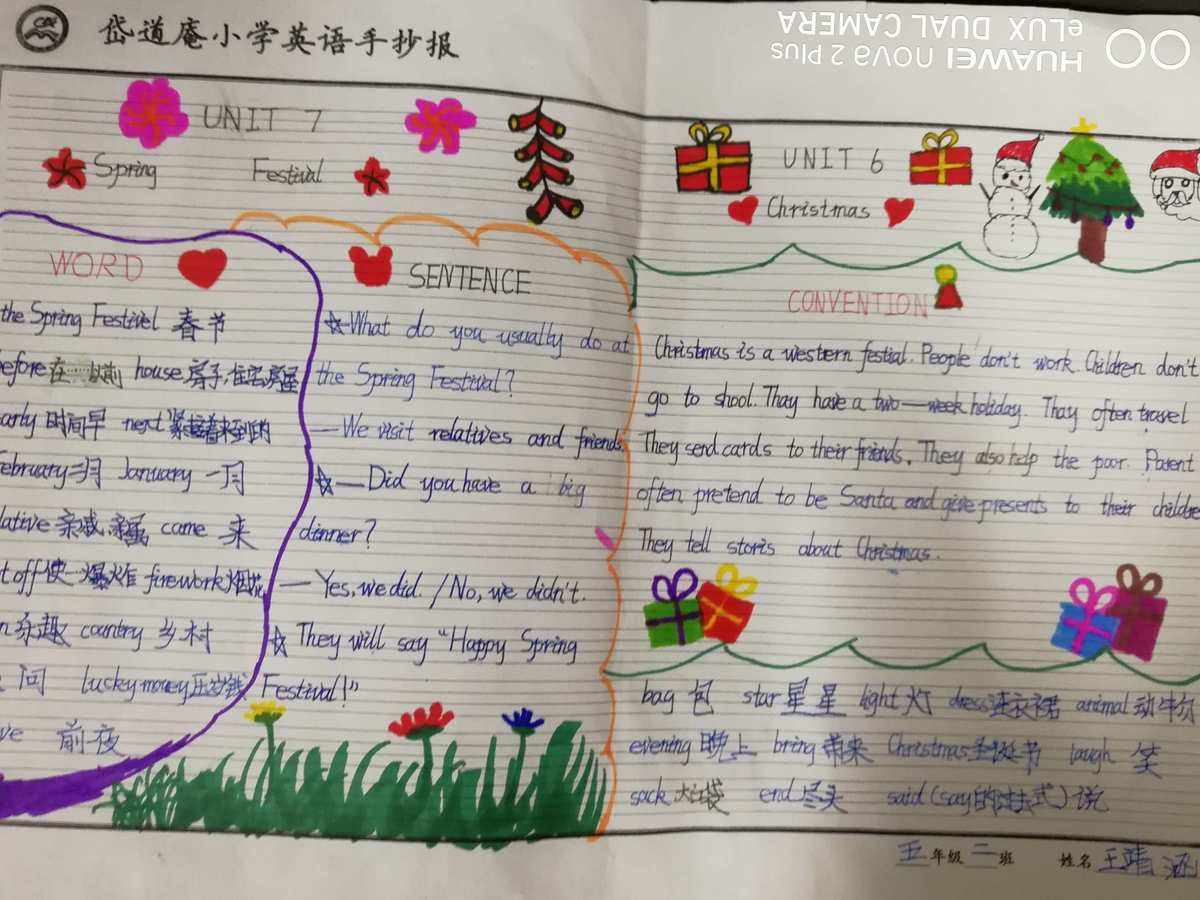 岱道庵小学英语手抄报
HUAWEI nova 2 Plus
eLUX DUAL CAMERA
UNIT 7
Spring Festival
WORD
the Spring Festivel 春节
before 在……以前 house 房子,住宅,房屋
arly 时间早 next 紧接着来到的
February 二月 January 一月
lative 亲戚,亲属 came 来
t off 使…爆炸 firework 烟花
n 乐趣 country 乡村
问 lucky money 压岁钱
ve 前夜
SENTENCE
☆—What do you usually do at
the Spring Festival?
—We visit relatives and friends.
☆—Did you have a big
dinner?
—Yes, we did. /No, we didn't.
☆ They will say "Happy Spring
Festival!"
UNIT 6
Christmas
CONVENTION
Christmas is a western festial. People don't work. Children don't
go to shool. Thay have a two—week holiday. Thay often travel
They send cards to their friends. They also help the poor. Parent
often pretend to be Santa and give presents to their childre
They tell storis about Christmas.
bag 包 star 星星 light 灯 dress 连衣裙 animal 动物
evening 晚上 bring 带来 Christmas 圣诞节 laugh 笑
sack 大口袋 end 尽头 said (say的过去式) 说
五年级二班 姓名 王靖涵